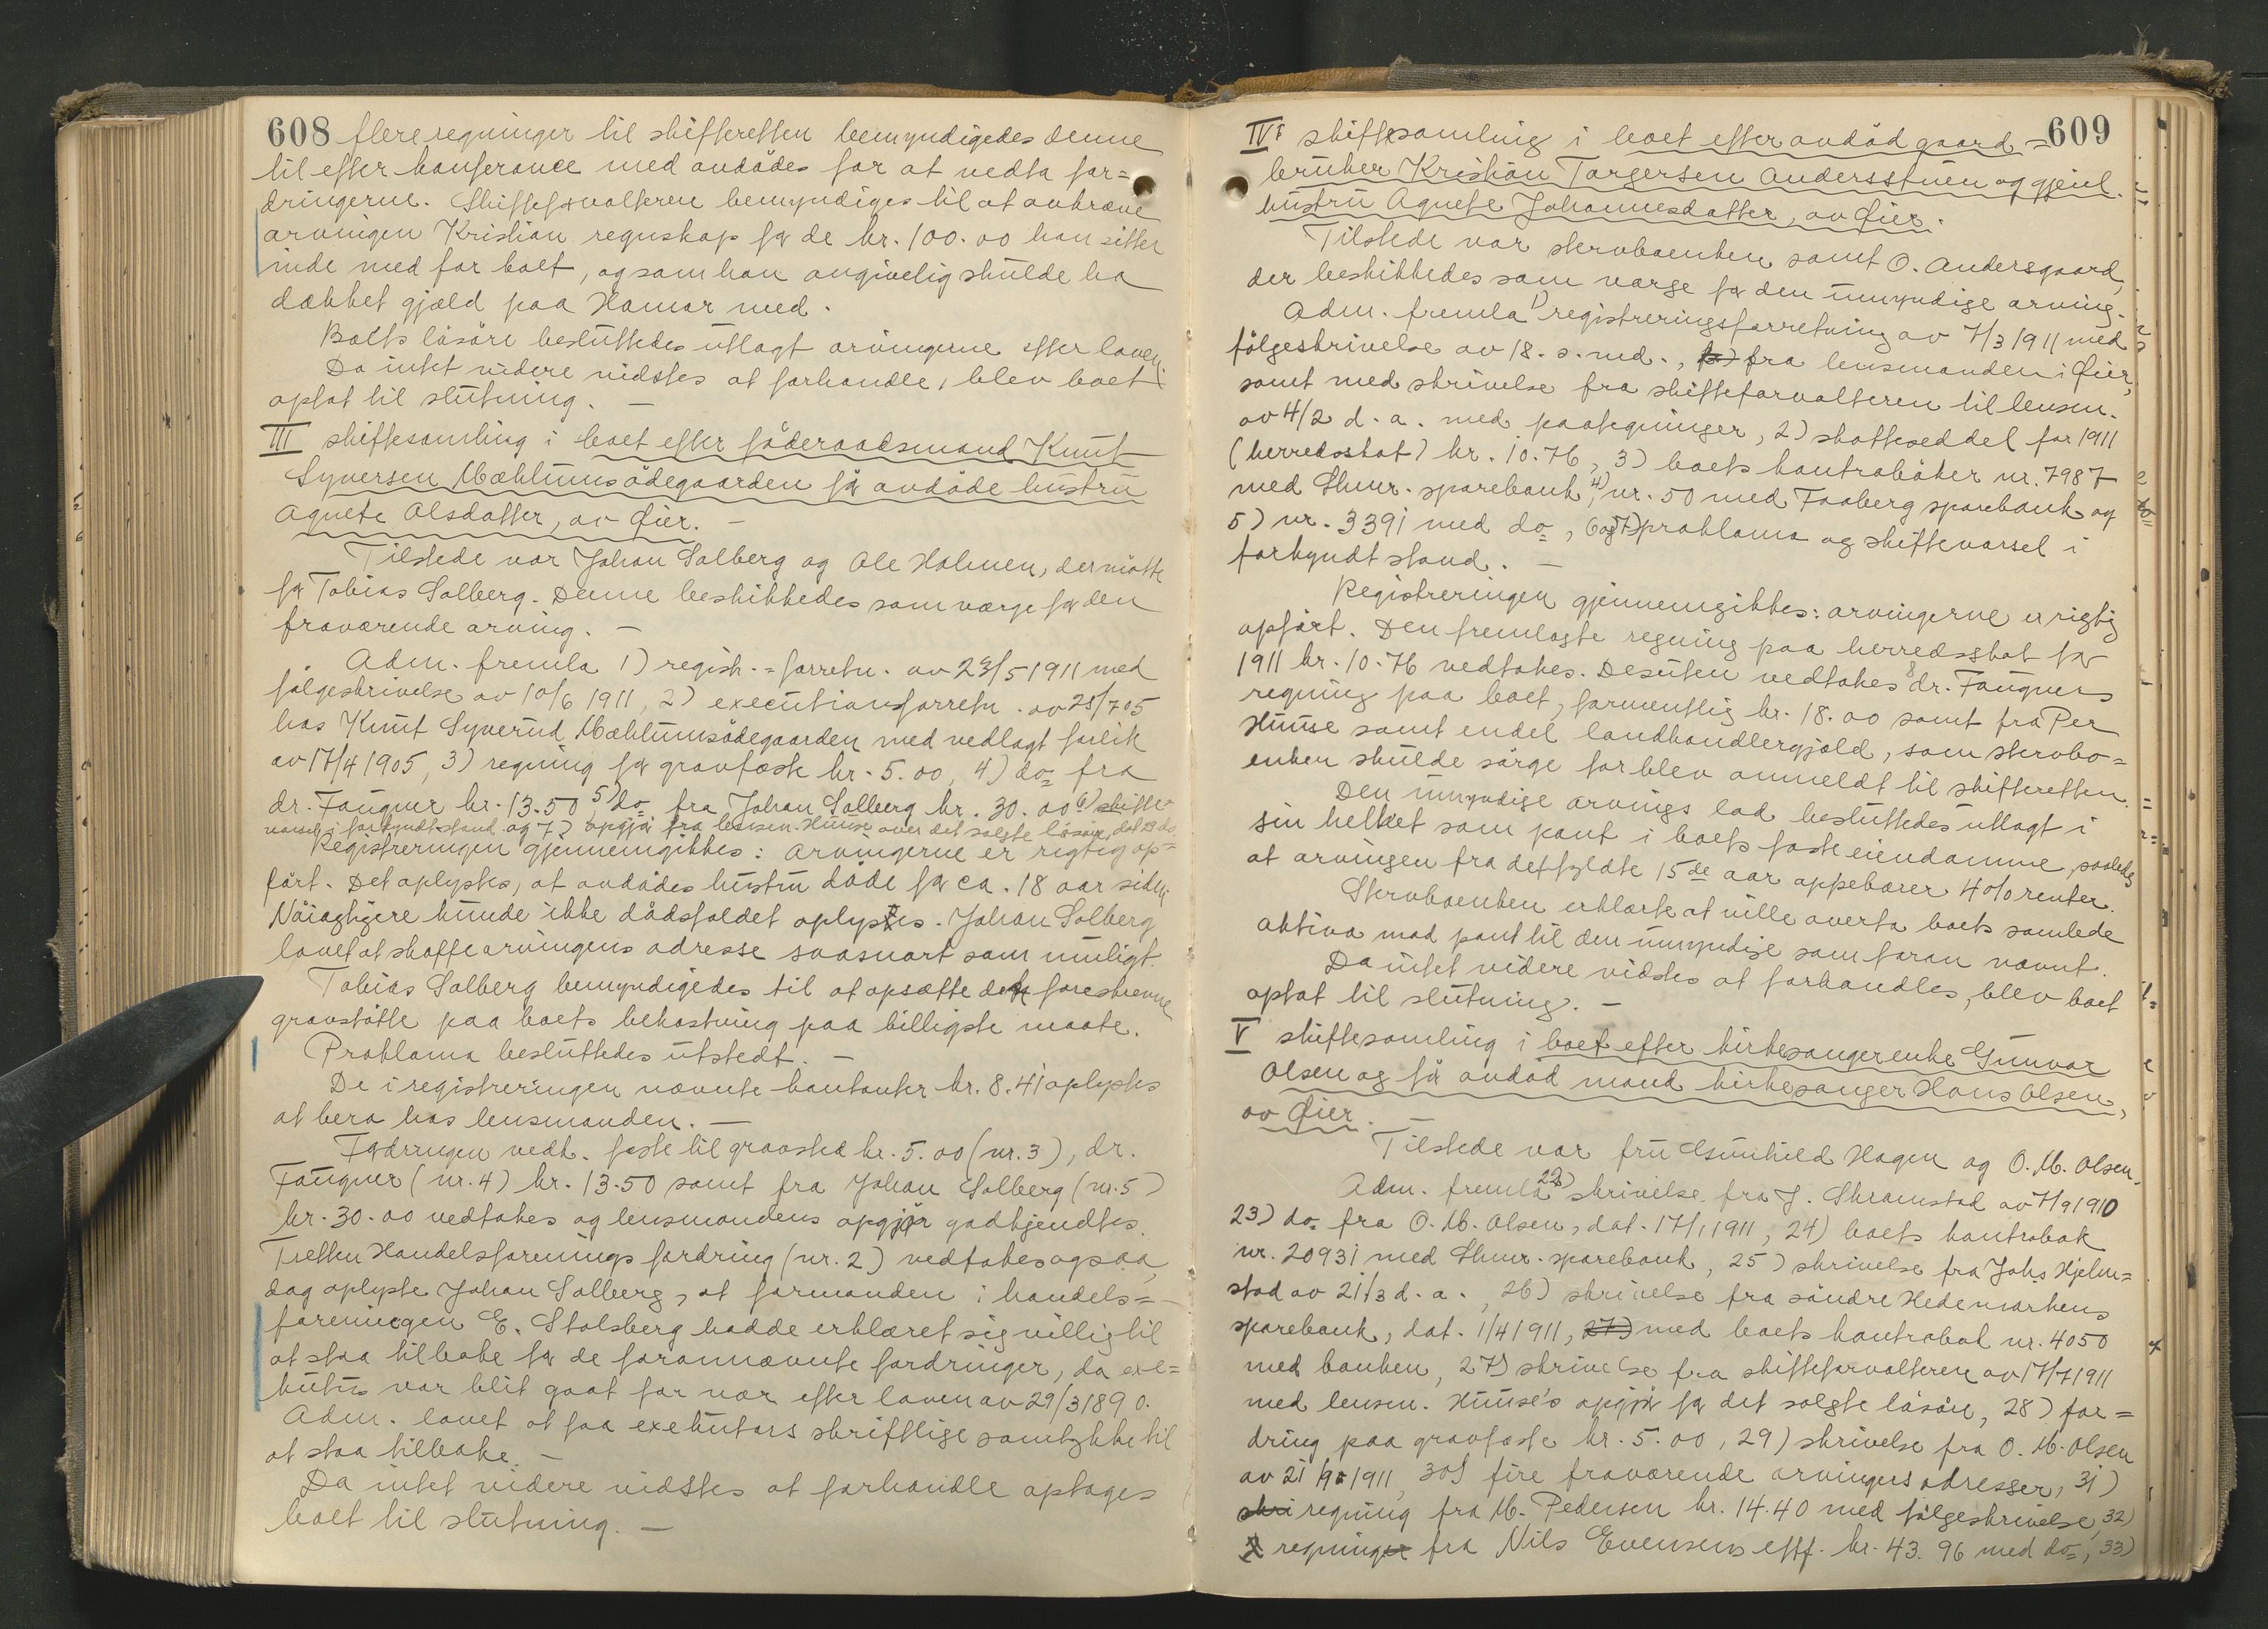 608 flere regninger til skifteretten bemyndigedes denne
til efter konferance med avdödes far at vedta for=
dringerne. Skifteforvalteren bemyndiges til at avkræve
arvingen Kristian regnskap for de kr. 100.00 han sitter
inde med for boet, og som han angivelig skulde ha
dækket gjæld paa Hamar med.
Boets lösöre besluttedes utlagt arvingerne efter loven.
Da intet videre vidstes at forhandle, blev boet
optat til slutning. —
III skiftesamling i boet efter föderaadsmand Knut
Syversen Mæhlumsödegaarden før avdöde hustru
Agnete Olsdatter, av Öier. —
Tilstede var Johan Solberg og Ole Holmen, der mötte
for Tobias Solberg. Denne beskikkedes som værge for den
fraværende arving. —
Adm. fremla 1) registr.=forretn. av 29/5 1911 med
fölgeskrivelse av 10/6 1911, 2) executionsforretn. av 25/7 05
hos Knut Syverud Mæhlumsödegaarden med vedlagt forlik
av 17/4 1905, 3) regning for gravfæste kr. 5.00, 4) do= fra
dr. Faugner kr. 13.50 5) do= fra Johan Solberg kr. 30.00 6) skifte=
varsel i forkyndt stand og 7) opgjör fra lensm. Huuse over det solgte lösöre, dat 29 ds.
Registreringen gjennemgikkes: Arvingerne er rigtig op=
fört. Det oplystes, at avdödes hustru döde for ca. 18 aar siden.
Nöiagtigere kunde ikke dödsfaldet oplystes. Johan Solberg
lovet at skaffe arvingens adresse saasnart som muligt.
Tobias Solberg bemyndigedes til at opsætte det foreskrevne
gravstötte paa boets bekostning paa billigste maate.
Proklama besluttedes utstedt. —
De i registreringen nævnte kontanter kr. 8.41 oplystes
at bero hos lensmanden. —
Fordringen vedk. fæste til gravsted kr. 5.00 (nr. 3), dr.
Faugner (nr. 4) kr. 13.50 samt fra Johan Solberg (nr. 5)
kr. 30.00 vedtakes og lensmandens opgjör godkjendtes.
Tretten Handelsforenings fordring (nr. 2) vedtakes ogsaa,
dog oplyste Johan Solberg, at formanden i handels=
foreningen E. Stalsberg hadde erklæret sig villig til
at staa tilbake for de forannævnte fordringer, da exe=
kutus var blit gaat for nær efter loven av 29/3 1890.
Adm. lovet at faa exekutors skriftlige samtykke til
at staa tilbake. —
Da intet videre vidstes at forhandle optages
boet til slutning. —
609
IV skiftesamling i boet efter avdöd gaard=
bruker Kristian Torgersen Andersstuen og gjenl.
hustru Agnete Johannesdatter, av Öier.
Tilstede var stervboenken samt O. Andersgaard,
der beskikkedes som værge for den umyndige arving.
Adm. fremla 1) registreringsforretning av 7/3 1911 med
fölgeskrivelse av 18. s. md., fra lensmanden i Öier,
samt med skrivelse fra skifteforvalteren til lensm.
av 4/2 d. a. med paategninger, 2) skatteseddel for 1911
(herredsskat) kr. 10.76, 3) boets kontraböker nr. 7987
med Lhmr. sparebank, 4) nr. 50 med Faaberg sparebank og
5) nr. 3391 med do=, 6 og 7) proklama og skiftevarsel i
forkyndt stand. —
Registreringen gjennemgikkes: arvingerne er rigtig
opfört. Den fremlagte regning paa herredsskat for
1911 kr. 10.76 vedtakes. Desuten vedtakes 8 dr. Faugners
regning paa boet, formentlig kr. 18.00 samt fra Per
Huuse samt endel landhandlergjæld, som stervbo=
enken skulde sörge for blev anmeldt til skifteretten.
Den umyndige arvings lod besluttedes utlagt i
sin helhet som pant i boets faste eiendomme, saaledes
at arvingen fra det fyldte 15de aar oppebærer 4% renter.
Stervboenken erklærte at ville overta boets samlede
aktiva mod pant til den umyndige som foran nævnt.
Da intet videre vidstes at forhandles, blev boet
optat til slutning. —
V skiftesamling i boet efter kirkesangerenke Gunvor
Olsen og før avdöd mand kirkesanger Hans Olsen,
av Öier.
Tilstede var fru Gunhild Hagen og O. M. Olsen.
Adm. fremla 22) skrivelse fra J. Skramstad av 7/9 1910
23) do= fra O. M. Olsen, dat. 17/1 1911, 24) boets kontrabok
nr. 20931 med Lhmr. sparebank, 25) skrivelse fra Johs Hjelm=
stad av 21/3 d. a., 26) skrivelse fra söndre Hedemarkens
sparebank, dat. 1/4 1911, 27) med boets kontrabok nr. 4050
med banken, 27) skrivelse fra skifteforvalteren av 17/7 1911
med lensm. Huuse's opgjör for det solgte lösöre, 28) for=
dring paa gravfæste kr. 5.00, 29) skrivelse fra O. M. Olsen
av 21/9 1911, 30) fire fraværende arvingers adresser, 31)
skri regning fra M. Pedersen kr. 14.40 med fölgeskrivelse, 32)
regninger fra Nils Evensens eftf. kr. 43.96 med do=, 33)